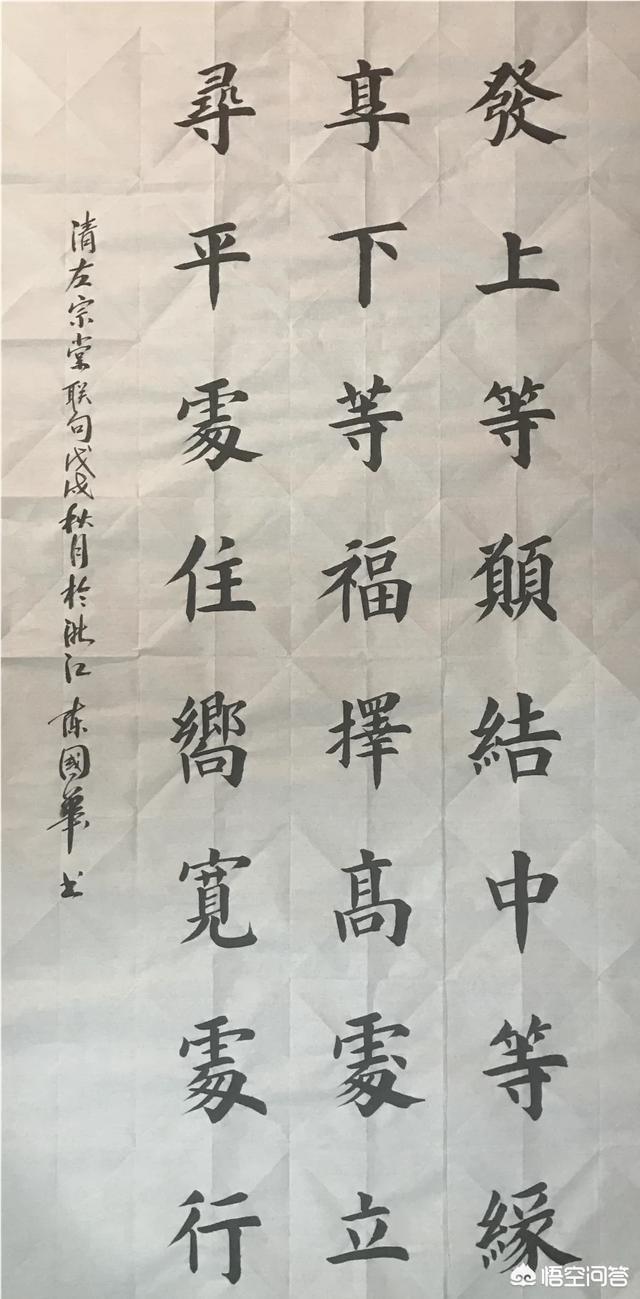 發上等願結中等緣
享下等福擇高處立
尋平處住嚮寬處行
清左宗棠联句戊戌秋月於江陈國華书
悟空问答